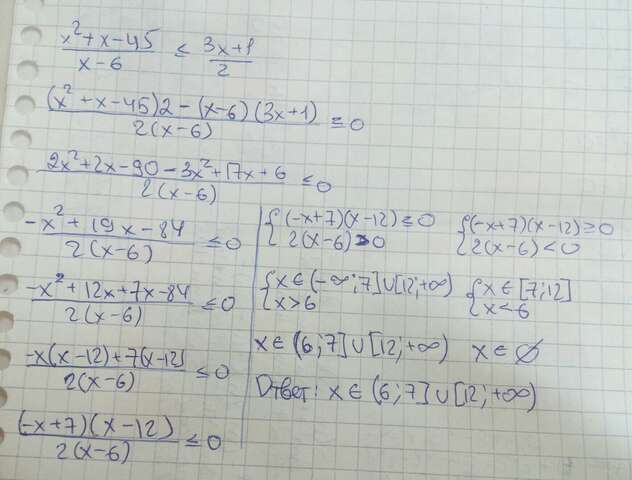 (x²+x-45)/(x-6) ≤ (3x+1)/2
((x²+x-45)2-(x-6)(3x+1))/(2(x-6)) ≤ 0
(2x²+2x-90-3x²+17x+6)/(2(x-6)) ≤ 0
(-x²+19x-84)/(2(x-6)) ≤ 0
(-x²+12x+7x-84)/(2(x-6)) ≤ 0
(-x(x-12)+7(x-12))/(2(x-6)) ≤ 0
((-x+7)(x-12))/(2(x-6)) ≤ 0
{(-x+7)(x-12) ≤ 0
{2(x-6) > 0
{x ∈ (-∞; 7] ∪ [12; +∞)
{x > 6
x ∈ (6; 7] ∪ [12; +∞)
{(-x+7)(x-12) ≥ 0
{2(x-6) < 0
{x ∈ [7; 12]
{x < 6
x ∈ ∅
Ответ: x ∈ (6; 7] ∪ [12; +∞)